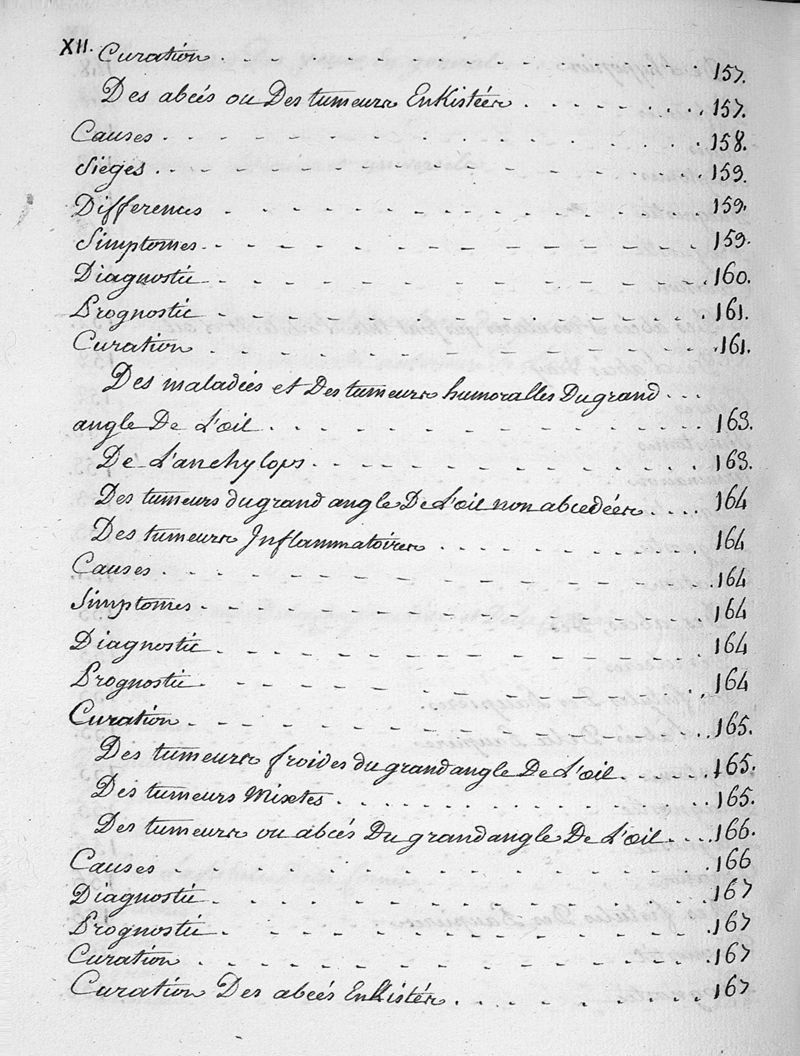 XII. Curation . . . . . . . . . . 157.
Des abcés ou Des tumeurs EnKistées . . . . . . . . 157.
Causes . . . . . . . . . . . . 158.
Siéges . . . . . . . . . . . . 159.
Differences . . . . . . . . . . . . 159.
Simptomes . . . . . . . . . . . . 159.
Diagnostic . . . . . . . . . . . . 160.
Prognostic . . . . . . . . . . . . 161.
Curation . . . . . . . . . . . . 161.
Des maladies et Des tumeurs humoralles Du grand . . .
angle De L'oeil . . . . . . . . . . . . 163.
De L'anchylops . . . . . . . . . . . . 163.
Des tumeurs du grand angle De L'oeil non abcedées . . . . 164
Des tumeurs Inflammatoires . . . . . . . . 164
Causes . . . . . . . . . . . . 164
Simptomes . . . . . . . . . . . . 164
Diagnostic . . . . . . . . . . . . 164
Prognostic . . . . . . . . . . . . 164
Curation . . . . . . . . . . . . 165.
Des tumeurs froides du grand angle De L'oeil . . . . . 165.
Des tumeurs Mixtes . . . . . . . . . . . . 165.
Des tumeurs ou abcés Du grand angle De L'oeil . . . . 166.
Causes . . . . . . . . . . . . 166
Diagnostic . . . . . . . . . . . . 167
Prognostic . . . . . . . . . . . . 167
Curation . . . . . . . . . . . . 167
Curation Des abcés EnKistés . . . . . . . . 167